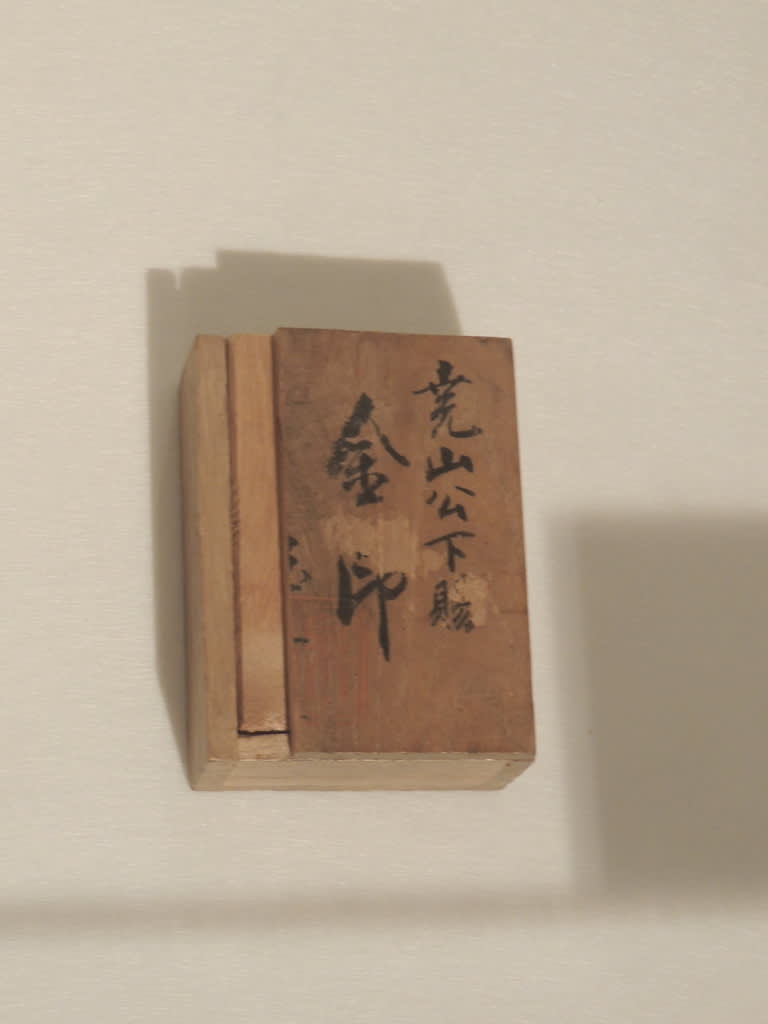 尭山公下賜
金印